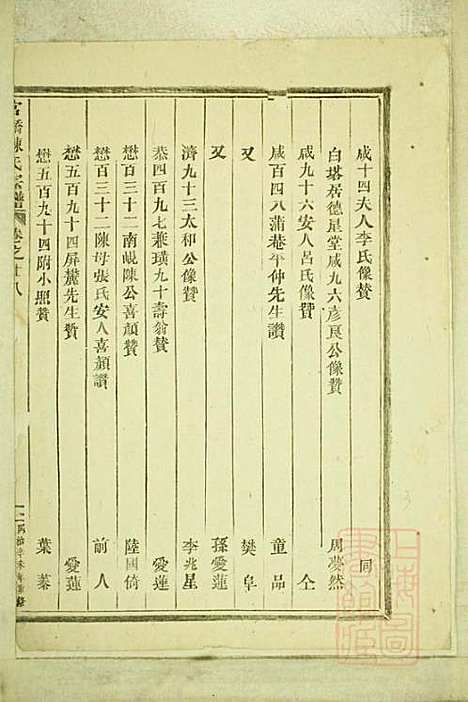 咸十四夫人李氏像贊 同
白塔居德星堂咸九六彥良公像贊 周夢然
咸九十六安人呂氏像贊 仝
咸百四八蒲菴平仲先生讚 童品
又 樊阜
又 孫愛蓮
濟九十三太和公像贊 李兆星
恭四百九七兼璜九十壽翁贊 愛蓮
懋百三十二南峴陳公喜顏贊 陸國倚
懋百三十二陳母張氏安人喜顏讚 前人
懋五百九十四屏麓先生贊 愛蓮
懋五百九十四附小照贊 葉蓁
陳氏宗譜 卷之廿八